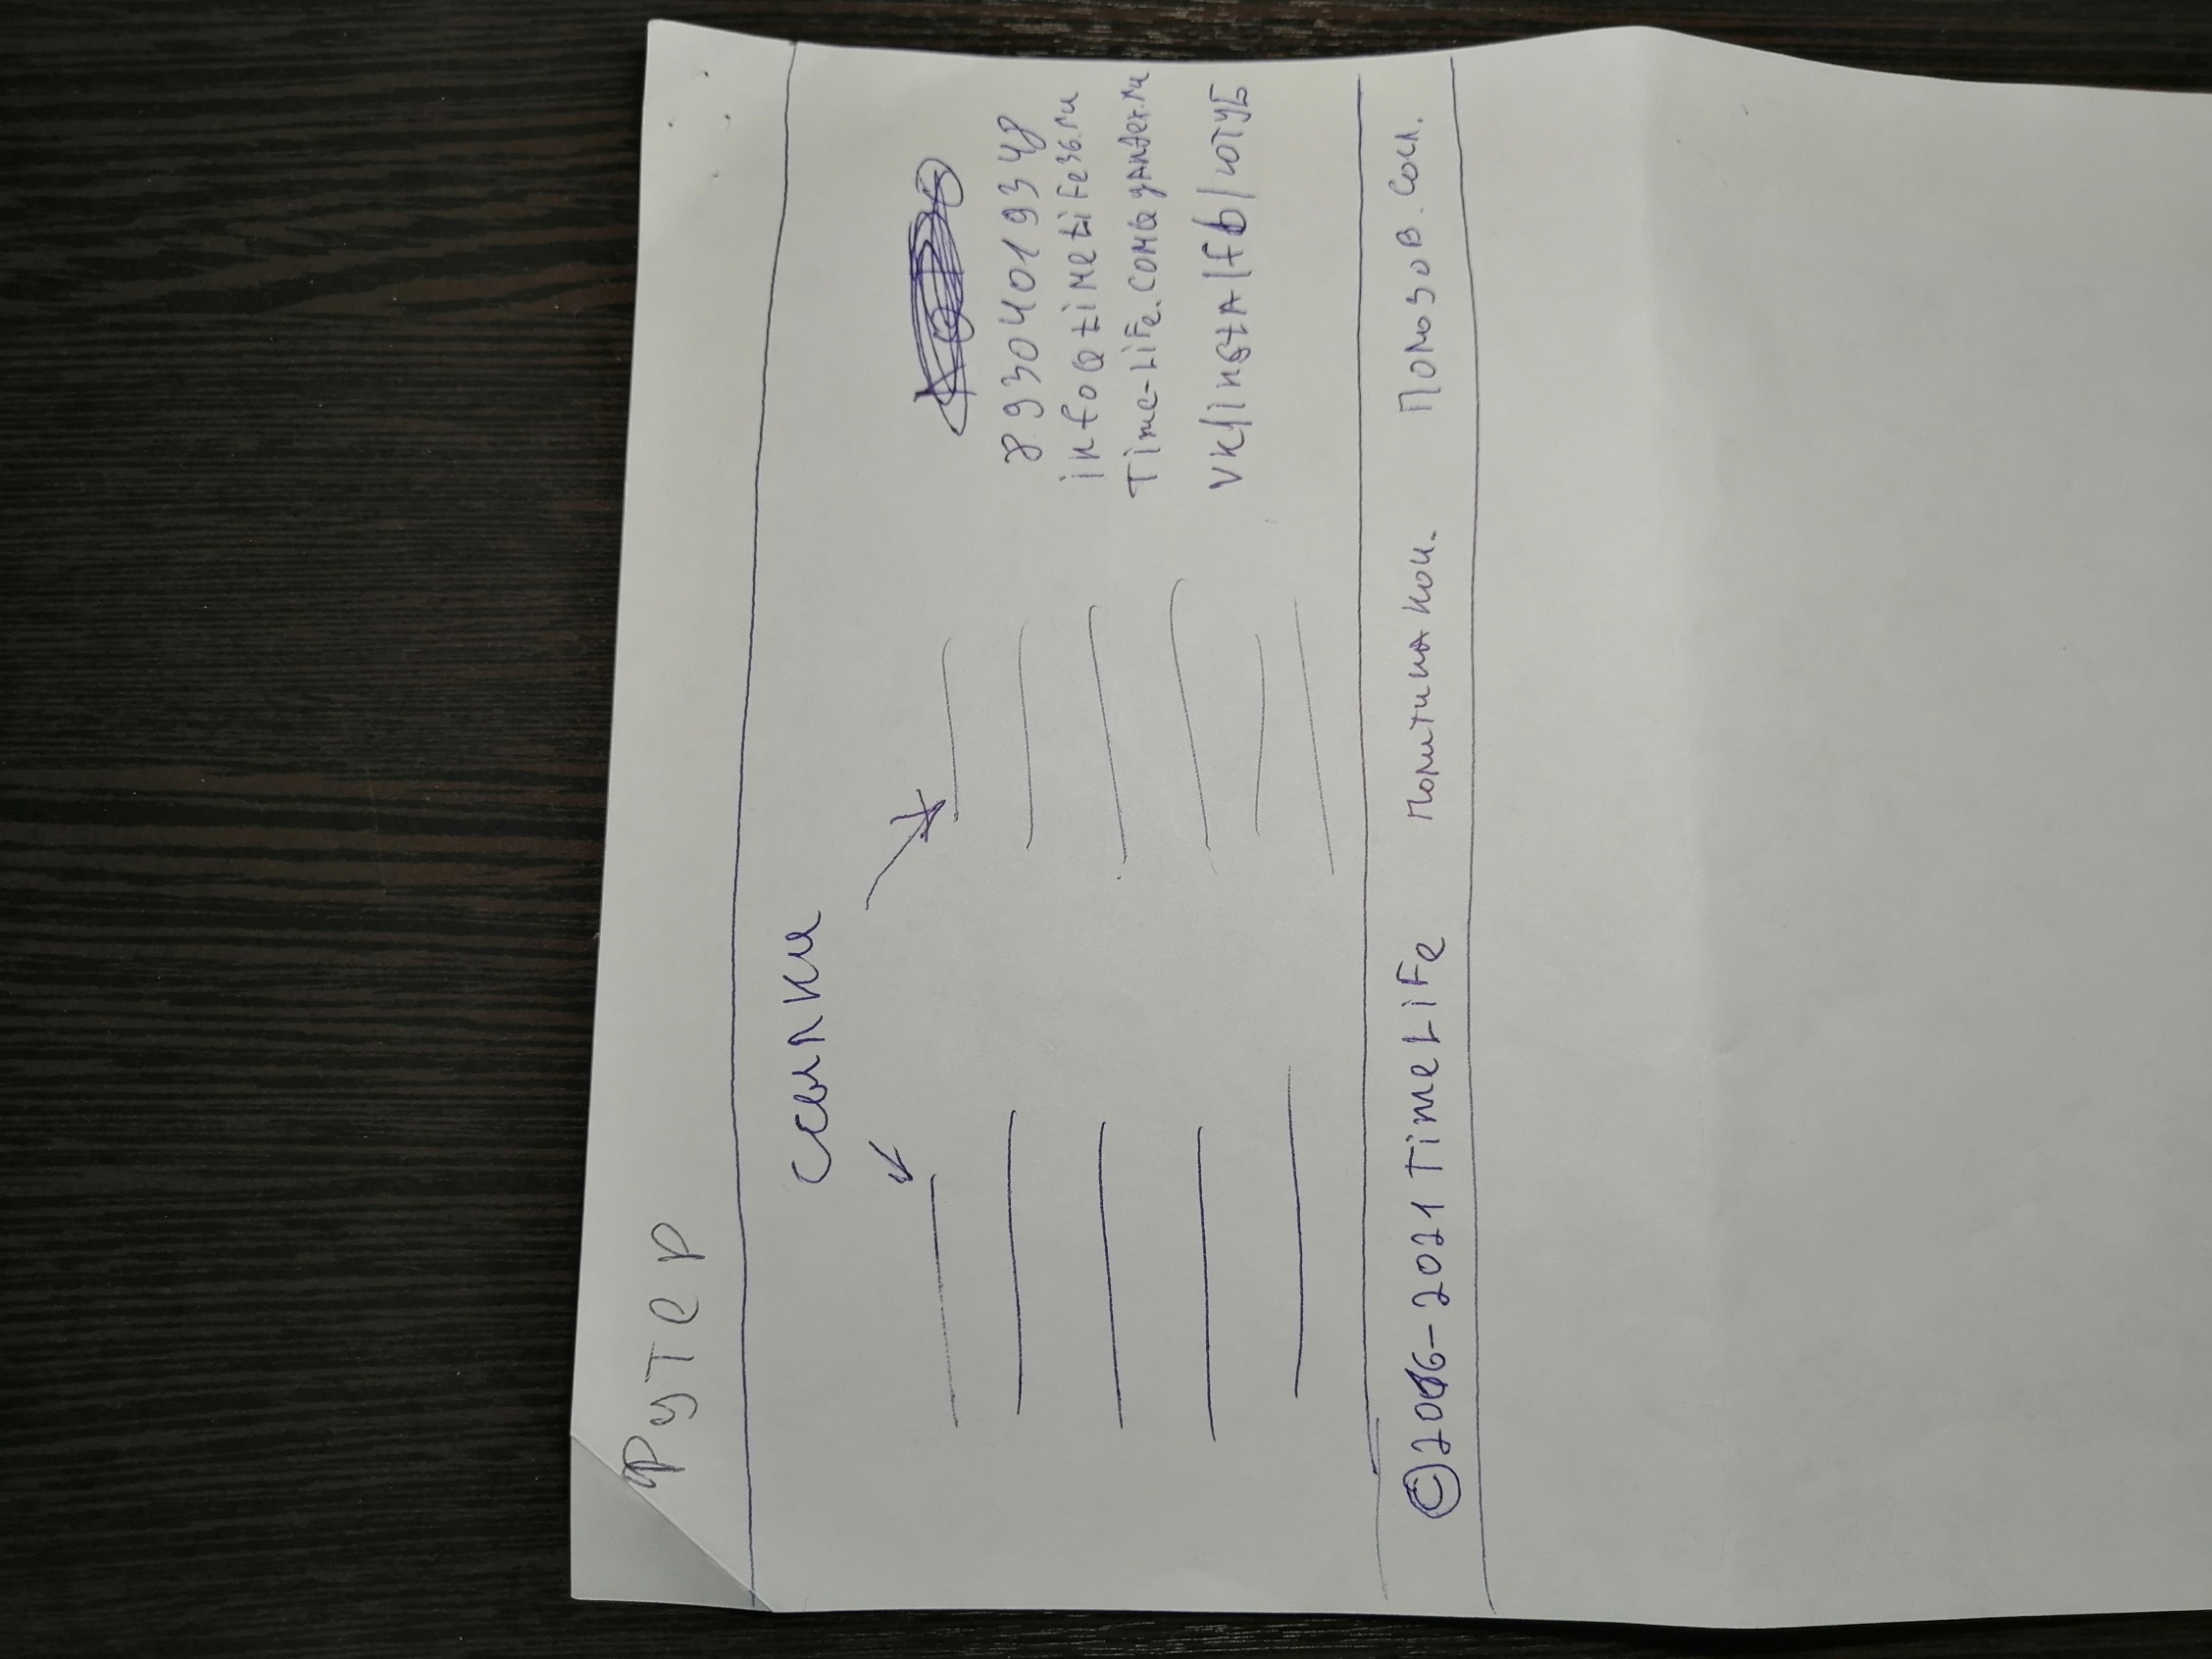 Футер
Ссылки
89304019348
info@timeLiFe36.ru
Time-LiFe.com@yandex.ru
VK/insta/fb/ютуб
© 2006-2021 TimeLiFe Политика кон. Пользов. Согл.